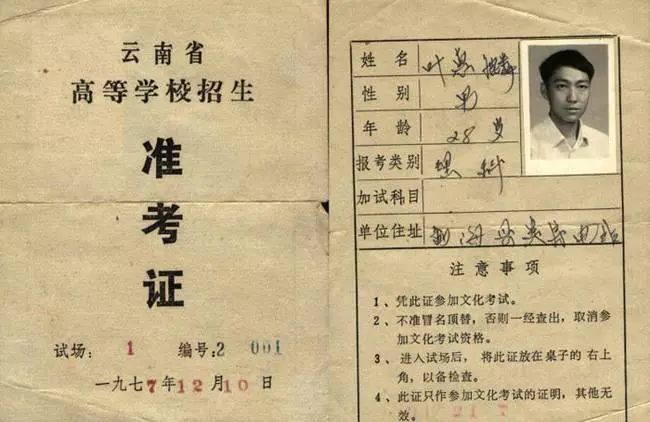 云南省
高等学校招生
准考证
试场：1 编号：2 001
一九七7年12月10日
姓名 叶
性别 男
年龄 28岁
报考类别 理科
加试科目
单位住址 海
注意事项
1、凭此证参加文化考试。
2、不准冒名顶替，否则一经查出，取消参
加文化考试资格。
3、进入试场后，将此证放在桌子的右上
角，以备检查。
4、此证只作参加文化考试的证明，其他无
效。